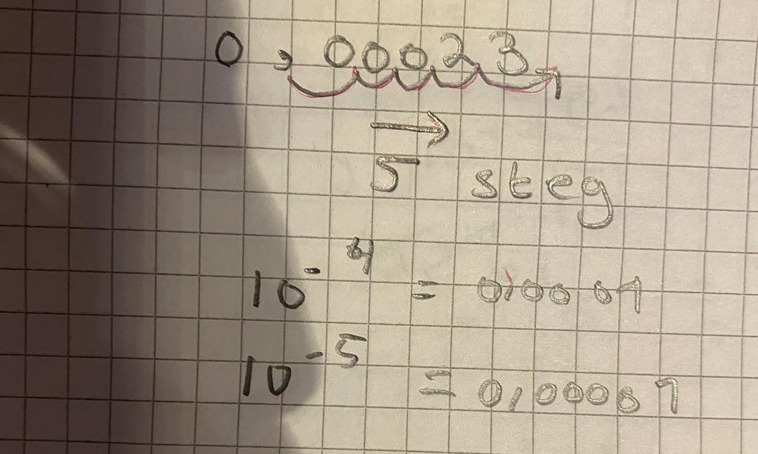 0,00023,
5 steg
10⁻⁴ = 0,0001
10⁻⁵ = 0,00001